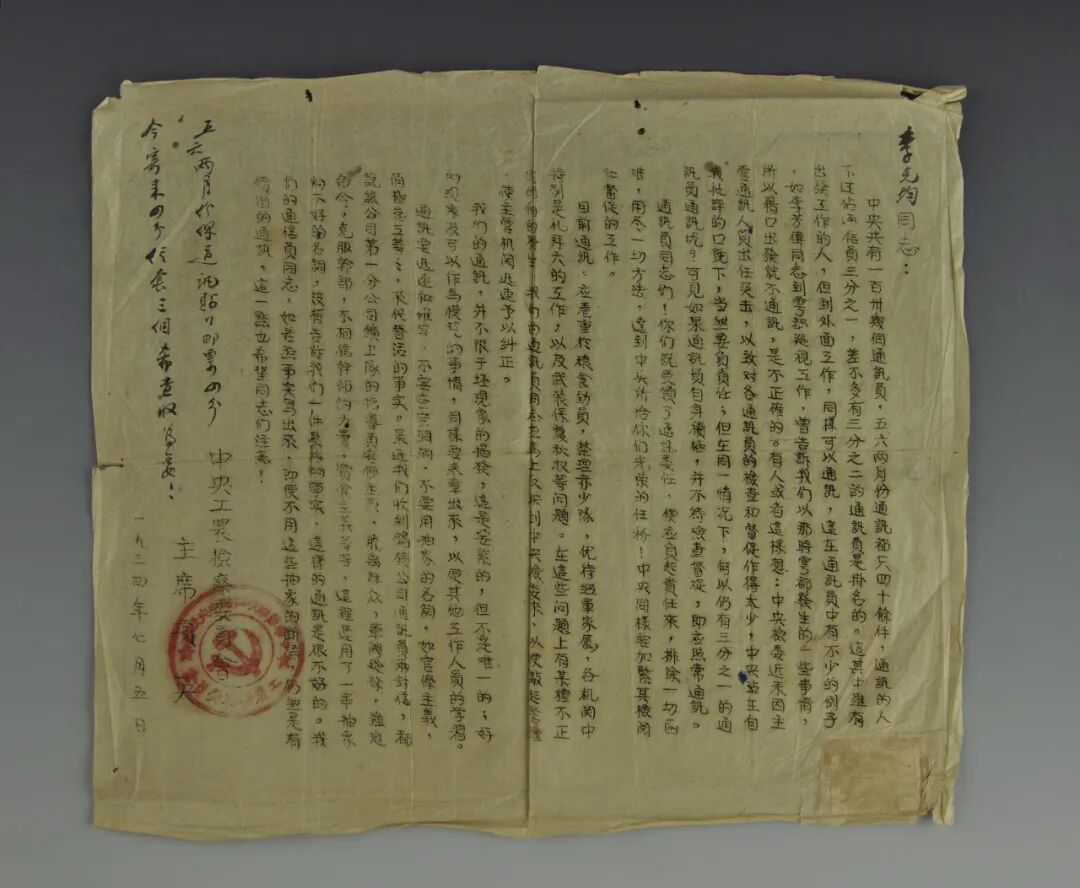 李克钧同志：
中央共有一百卅幾個通訊員，五六两月份通訊都只四十餘件，通訊的人
不过佔通信員三分之一，差不多有三分之二的通訊員是掛名的。這其中雖有
出發工作的人，但到外面工作，同樣可以通訊，這在通訊員中有不少的例子
，如李芳偉同志到雩都巡視工作，曾告訴我們以那時雩都發生的一些事情，
所以藉口出發就不通訊，是不正確的。有人或者這樣想：中央檢委近來因主
要通訊人員出任突击，以致对各通訊員的檢查和督促作得太少，中央站在自
我批評的口號下，当然要負責任；但在同一情况下，何以仍有三分之一的通
訊員通訊呢？可見如果通訊員自身積極，并不待檢查督促，即应照常通訊。
通訊員同志們！你们既然領了通訊委任，便应負起責任來，排除一切困
难，用尽一切方法，達到中央所给你们光荣的任務！中央同樣要加緊其檢閱
和督促的工作。
目前通訊：应着重於粮食動員，整理赤少隊，优待红軍家屬，各机関中
特别是礼拜六的工作，以及武装保護秋收等問題。在這些问題上有某種不正
確傾向的發生，我们的通訊員同志應馬上反映到中央檢委來，以便
，使主管机関迅速予以糾正。
我們的通訊，并不限于坏現象的揭發，這是要緊的，但不是唯一的；好
的現象及可以作為模范的事情，同樣要來章出來，以便其他工作人員的学習。
通訊要迅速和確实，不要空空洞洞，不要用抽象的名詞，如官僚主義，
消極怠工等之，來代替活的事实。最近我们收到鎢鑛公司通訊員兩封信，都
説該公司第一分公司鑛工隊的指導員官僚主義，脱離群众，
命令，克服幹部，不相信幹部的力量，貪食主義等等，這裡運用了一串抽象
的不好的名詞，沒有告訴我们一件具體的事实，這樣的通訊是很不好的。我
们的通信員同志，如若照事实寫出來，即便不用這些抽象的断语，仍然是有
價值的通訊，這一點也希望同志们注意！
中央工農檢察委員會
主席 項英
一九三四年七月五日
五六两月份保送訊貼口邮票四分
今寄來四分信套三個希查收為要：